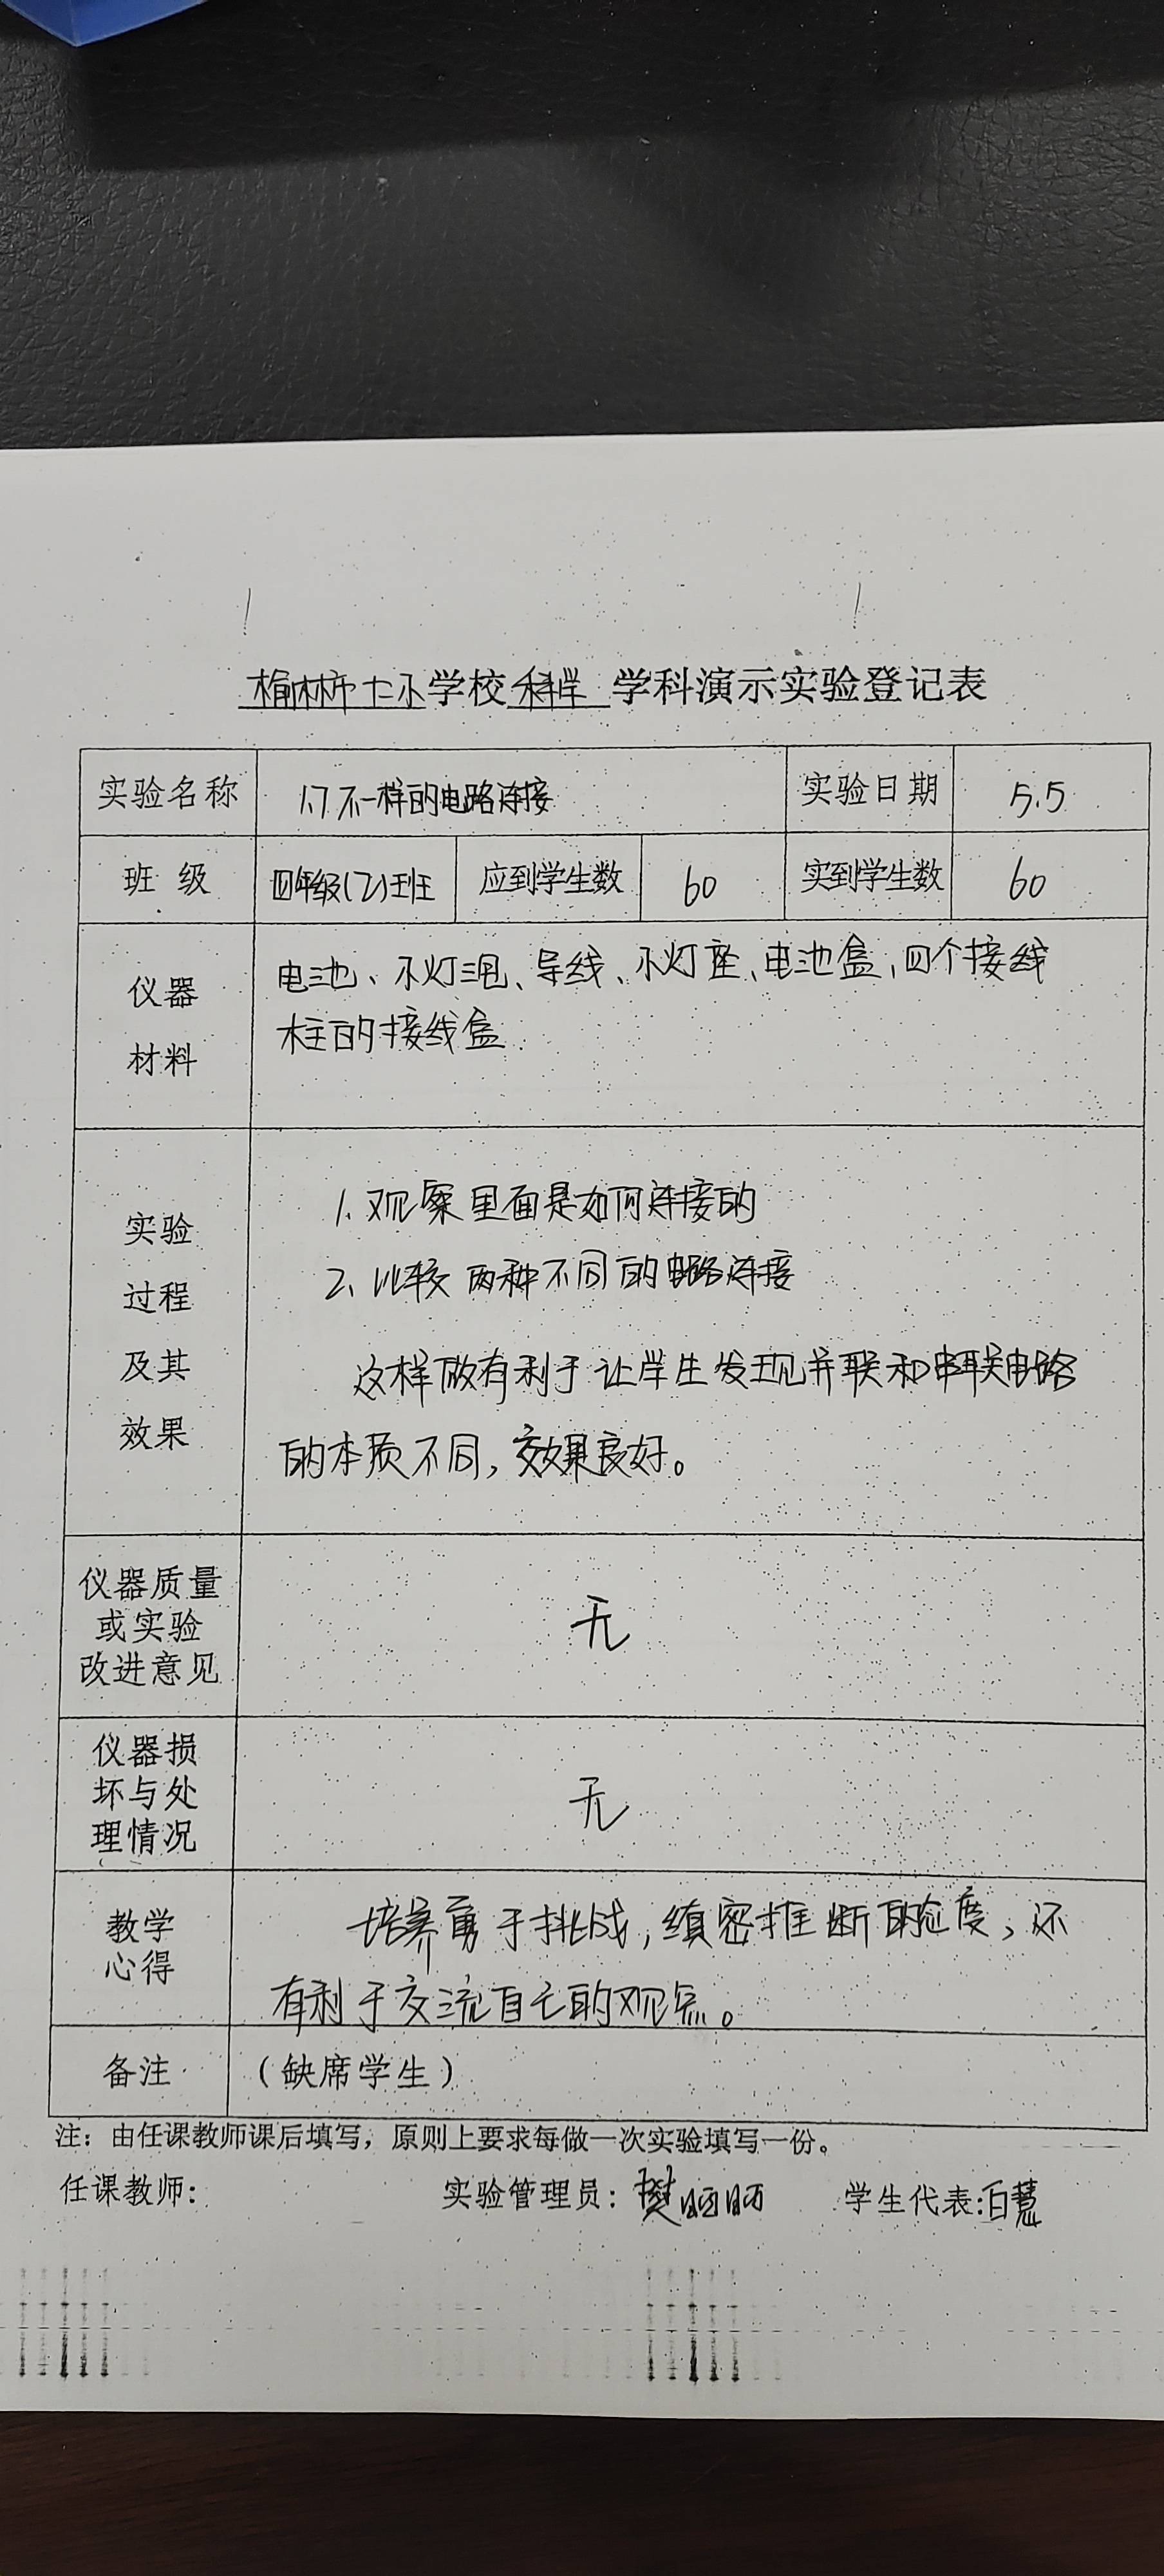 榆林市十二小学校科学学科演示实验登记表
实验名称 1.7 不一样的电路连接 实验日期 5.5
班 级 四年级(7)班 应到学生数 60 实到学生数 60
仪器
材料
电池、小灯泡、导线、小灯座、电池盒、四个接线
柱的接线盒
实验
过程
及其
效果
1. 观察里面是如何连接的
2. 比较两种不同的电路连接
这样做有利于让学生发现并联和串联电路
的本质不同,效果良好。
仪器质量
或实验
改进意见
无
仪器损
坏与处
理情况
无
教学
心得
培养勇于挑战,缜密推断的态度,还
有利于交流自己的观点。
备注 (缺席学生)
注:由任课教师课后填写,原则上要求每做一次实验填写一份。
任课教师: 实验管理员:樊 学生代表:白慧